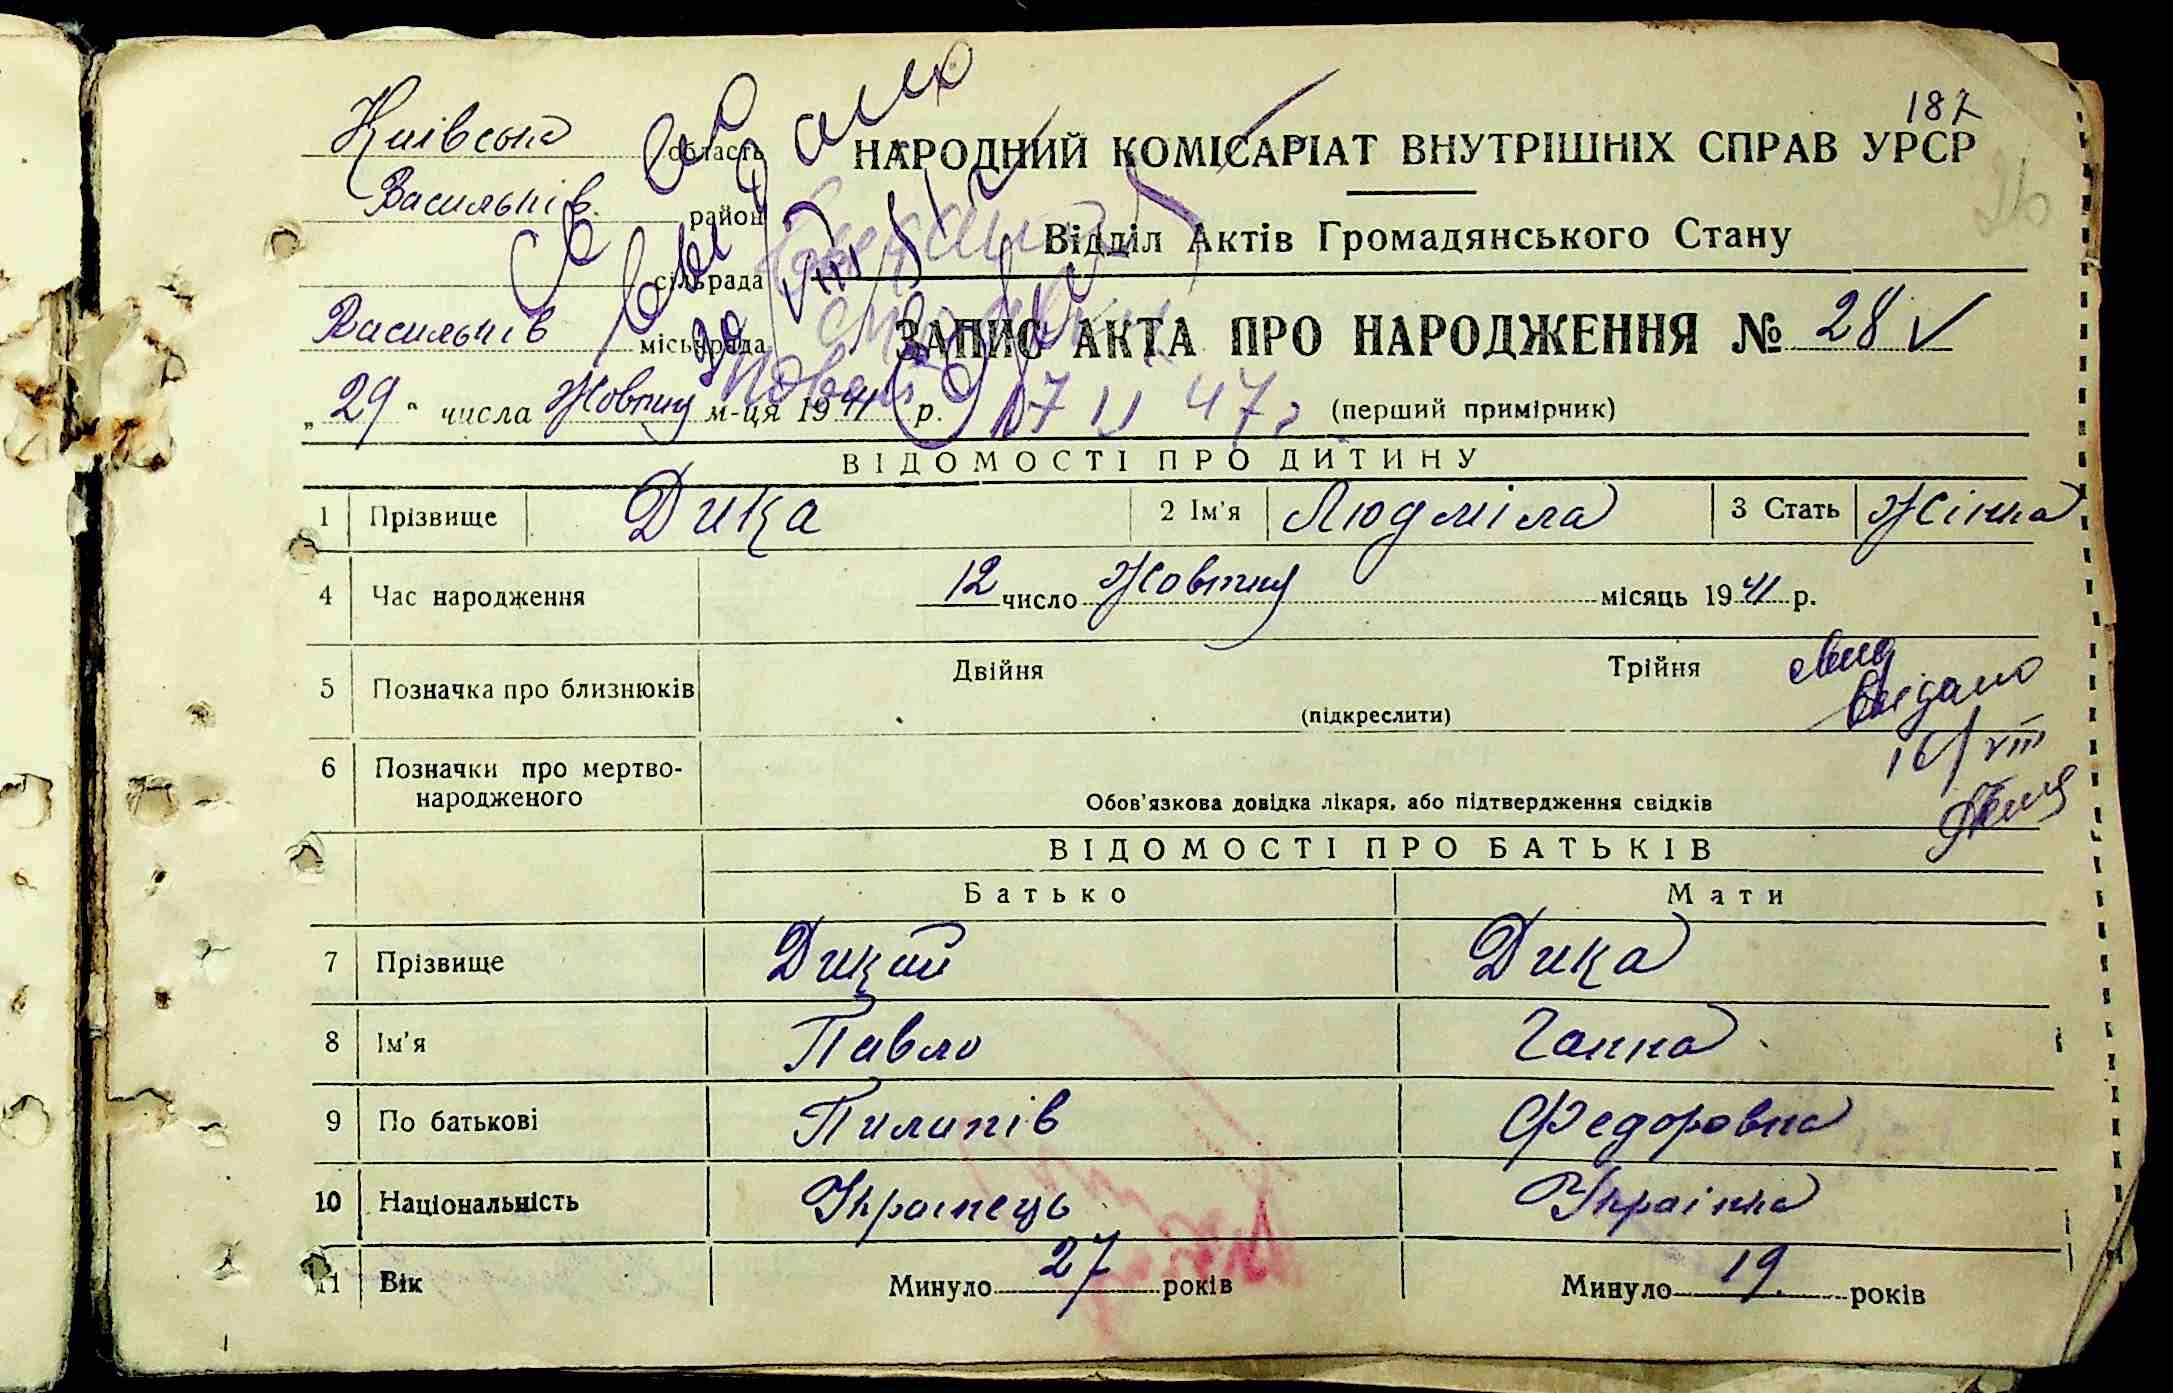 187
Київська область
НАРОДНИЙ КОМІСАРІАТ ВНУТРІШНІХ СПРАВ УРСР
Васильків. район
Відділ Актів Громадянського Стану
сільрада
Васильків міськрада
ЗАПИС АКТА ПРО НАРОДЖЕННЯ № 28
„29“ числа Жовтня м-ця 1941 р.
17 11 47 г
(перший примірник)
ВІДОМОСТІ ПРО ДИТИНУ
1 Прізвище Дика 2 Ім'я Людміла 3 Стать Жінна
4 Час народження 12 число Жовтня місяць 1941 р.
5 Позначка про близнюків Двійня Трійня
(підкреслити)
видано
16/VIII
6 Позначки про мертво-
народженого
Обов'язкова довідка лікаря, або підтвердження свідків
ВІДОМОСТІ ПРО БАТЬКІВ
Батько Мати
7 Прізвище Дикий Дика
8 Ім'я Павло Ганна
9 По батькові Пилипів Федоровна
10 Національність Українець Українка
11 Вік Минуло 27 років Минуло 19 років